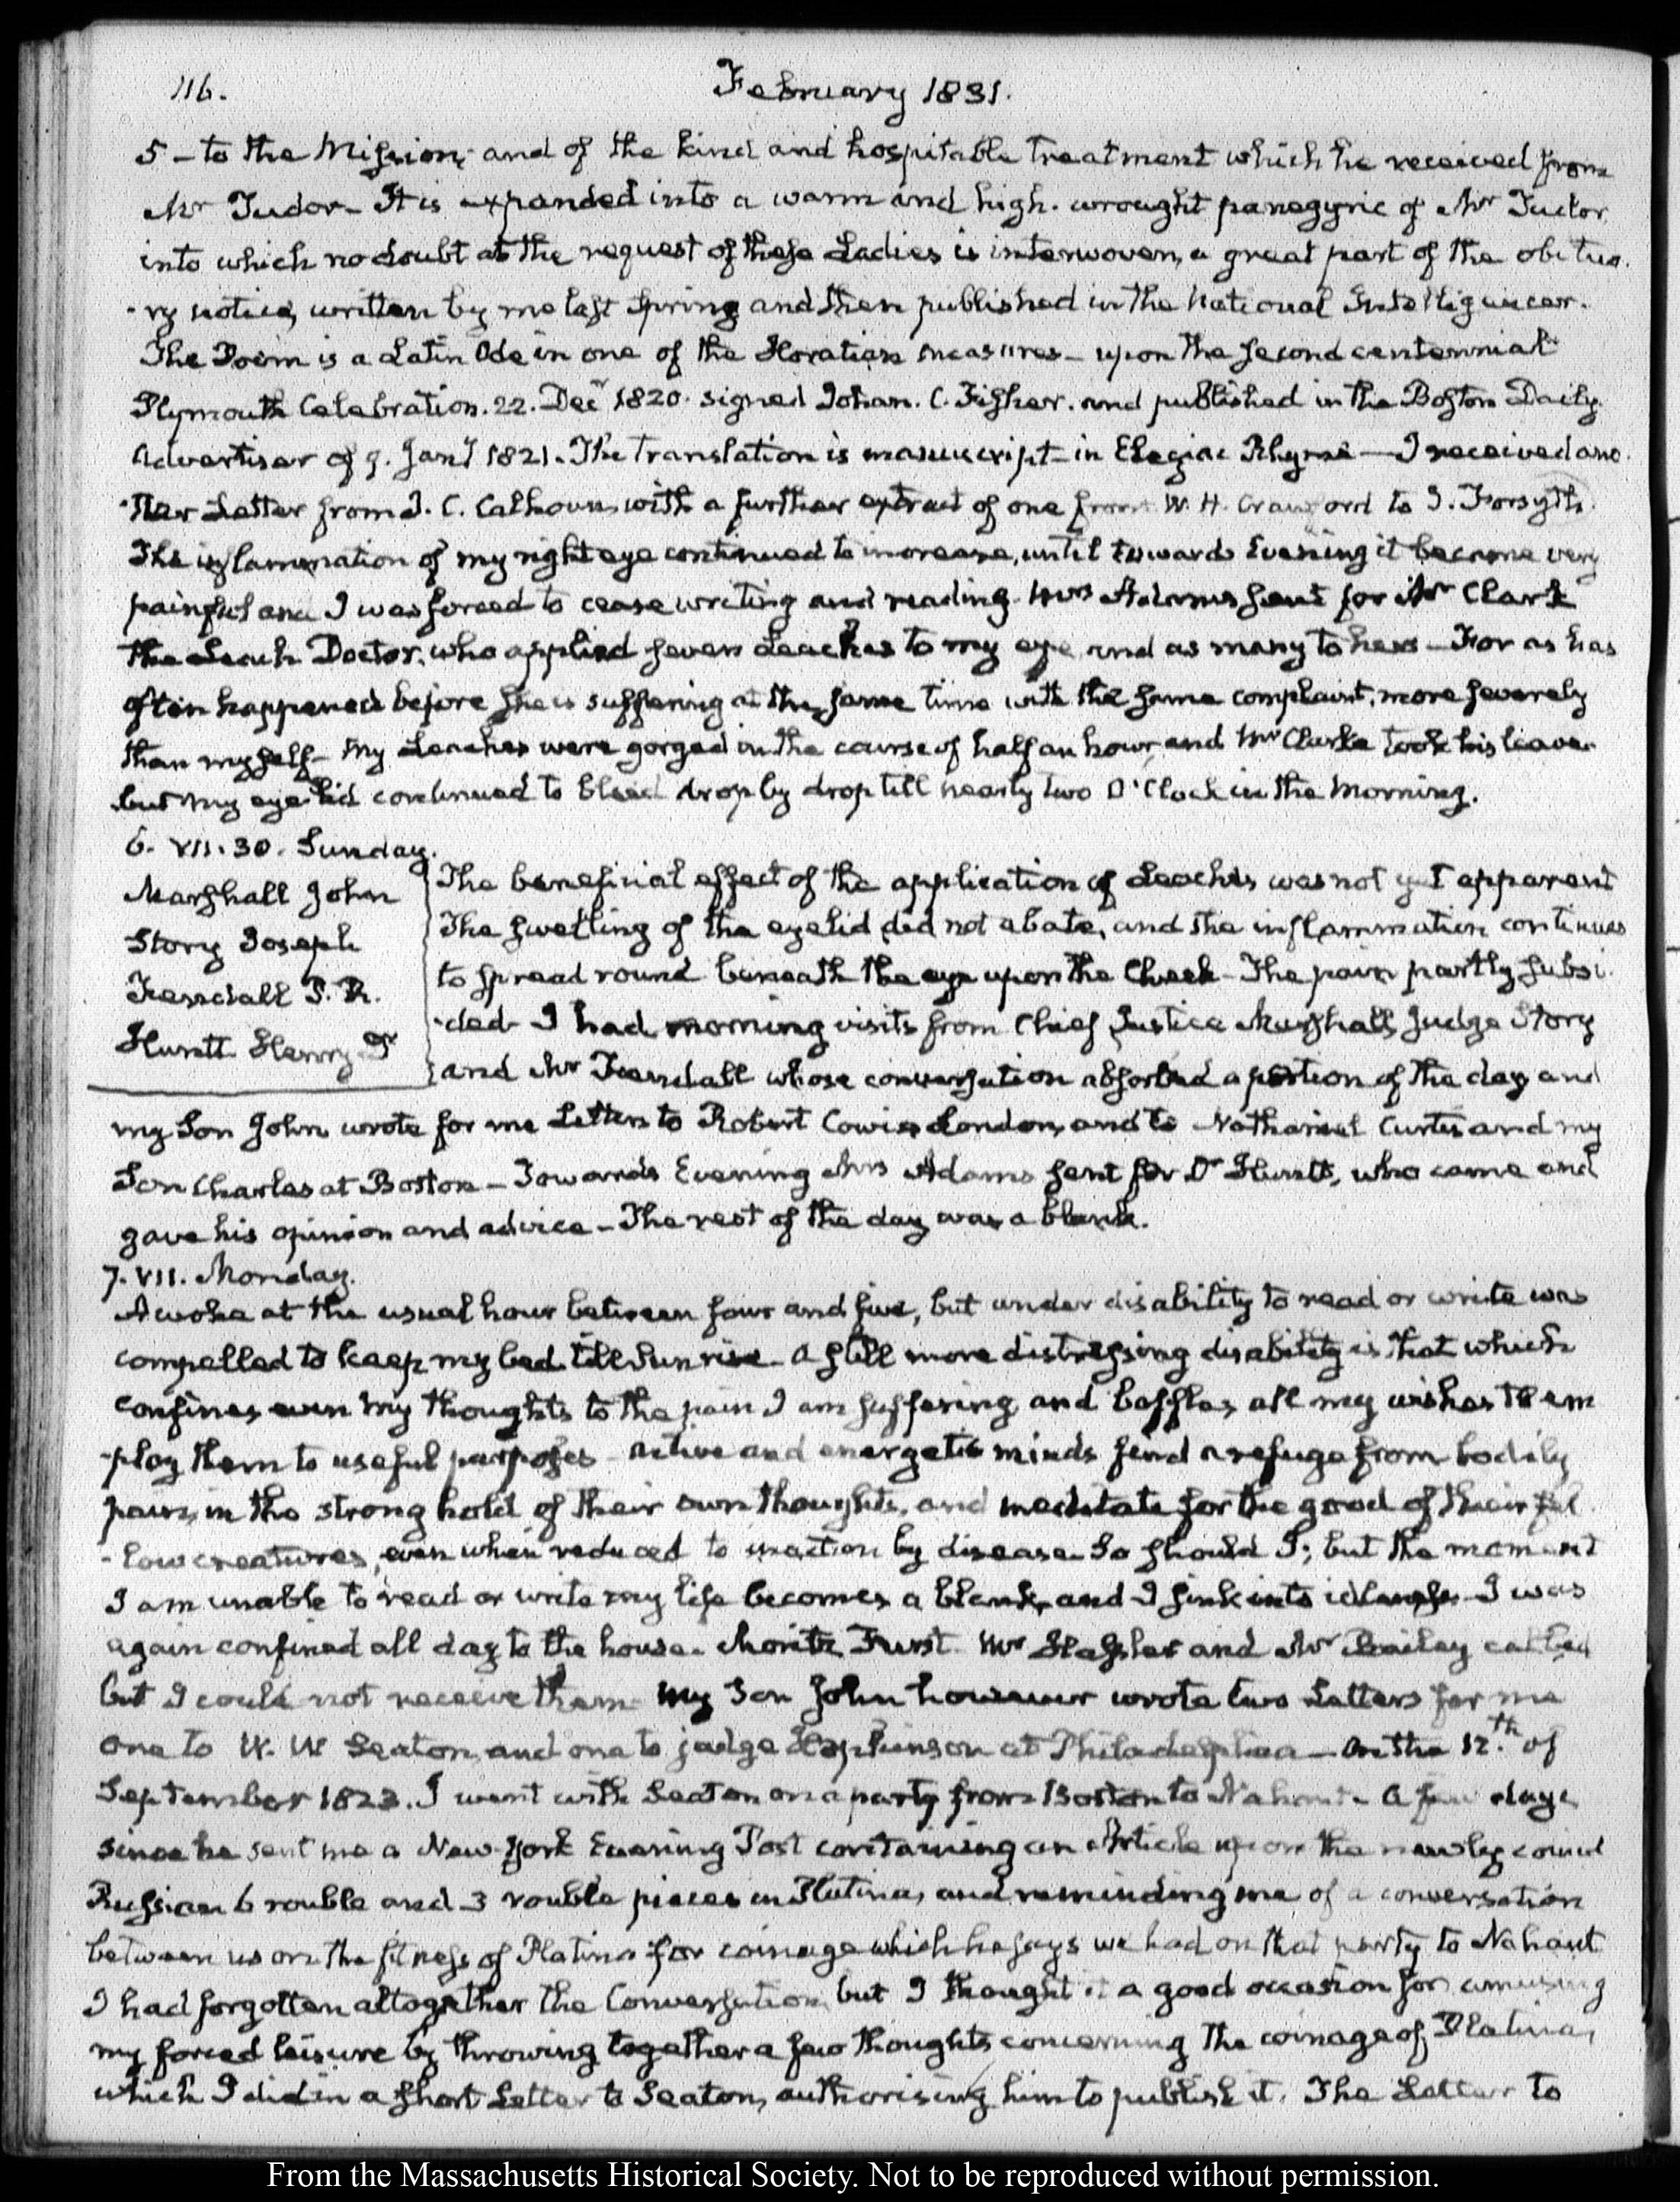 116.
February 1831.
5 – to the Mission, and of the kind and hospitable treatment which he received from
Mr Tudor – It is expanded into a warm and high-wrought panegyric of Mr Tudor,
into which no doubt at the request of these Ladies is interwoven, a great part of the obitua-
-ry notice, written by me last Spring and then published in the National Intelligencer.
The Poem is a Latin Ode in one of the Horatian measures – upon the second centennial
Plymouth Celebration. 22. Decr 1820. signed Johan. C. Fisher. and published in the Boston Daily
Advertiser of 9. Jany 1821. The translation is manuscript – in Elegiac Rhyme — I received ano-
-ther Letter from J. C. Calhoun, with a further extract of one from W. H. Crawford to J. Forsyth.
The inflammation of my right eye continued to increase, until towards Evening it became very
painful and I was forced to cease writing and reading. Mrs Adams sent for Mr Clark
the Leach Doctor, who applied seven Leaches to my eye, and as many to hers – For as has
often happened before she is suffering at the same time with the same complaint, more severely
than myself – My Leaches were gorged in the course of half an hour, and Mr Clarke took his leave
but my eye-lid continued to bleed drop by drop till nearly two O'Clock in the Morning.
6. VII.30. Sunday.
Marshall John
Story Joseph
Frendall T. R.
Huntt Henry Dr
The beneficial effect of the application of Leaches was not yet apparent
The swelling of the eyelid did not abate, and the inflammation continues
to spread round beneath the eye upon the Cheek – The pain partly subsi-
-ded – I had morning visits from Chief Justice Marshall, Judge Story
and Mr Frendall whose conversation absorbed a portion of the day and
my Son John wrote for me Letters to Robert Cowie London, and to Nathaniel Curtis and my
Son Charles at Boston – Towards Evening Mrs Adams sent for Dr Huntt, who came and
gave his opinion and advice – The rest of the day was a blank.
7. VII. Monday.
Awoke at the usual hour between four and five, but under disability to read or write was
compelled to keep my bed till Sun rise – A still more distressing disability is that which
confines even my thoughts to the pain I am suffering and baffles all my wishes to em-
-ploy them to useful purposes – Active and energetic minds find a refuge from bodily
pain, in the strong hold of their own thoughts, and meditate for the good of their fel-
-low creatures, even when reduced to inaction by disease. So should I; but the moment
I am unable to read or write my life becomes a blank, and I sink into idleness – I was
again confined all day to the house. Moritz Furst Mr Hassler and Mr Bailey called
but I could not receive them – My Son John however wrote two Letters for me
one to W. W Seaton, and one to judge Hopkinson at Philadelphia – On the 12th. of
September 1822. I went with Seaton on a party from Boston to Nahant – A few days
since he sent me a New-York Evening Post containing an Article upon the newly coined
Russian 6 rouble and 3 rouble pieces in Platina, and reminding me of a conversation
between us on the fitness of Platina for coinage which he says we had on that party to Nahant
I had forgotten altogether the Conversation, but I thought it a good occasion for amusing
my forced leisure by throwing together a few thoughts concerning the coinage of Platina,
which I did in a short Letter to Seaton, authorising him to publish it. The Letter to
From the Massachusetts Historical Society. Not to be reproduced without permission.